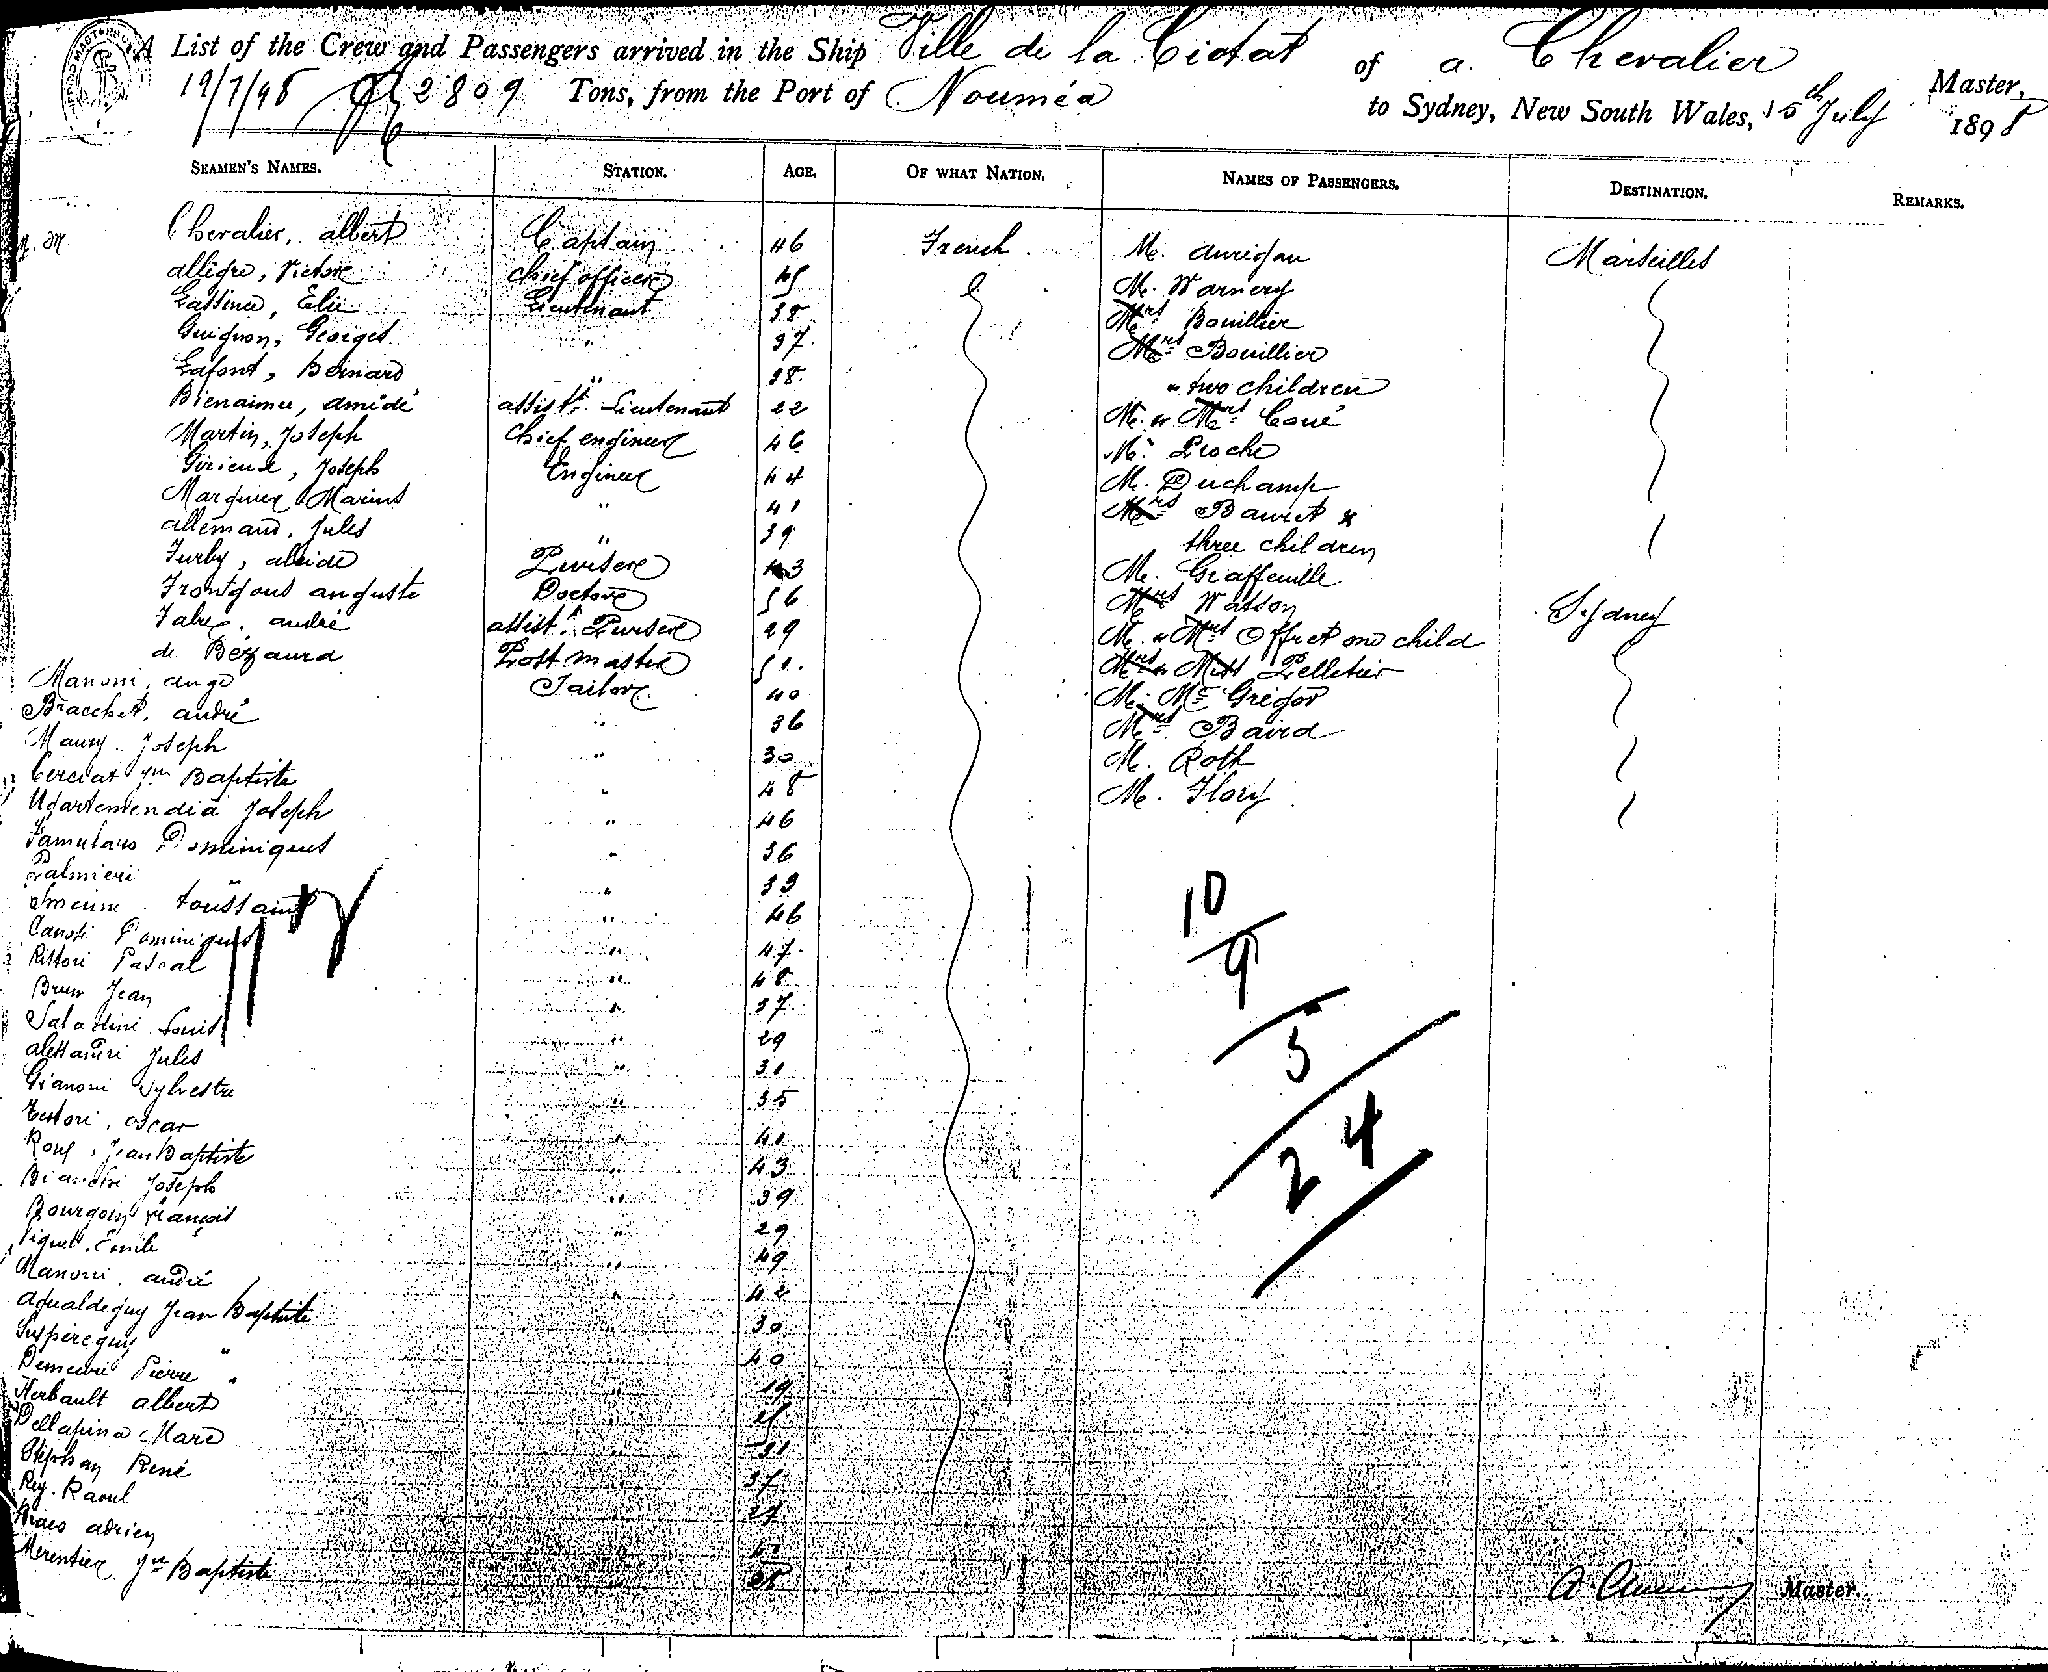 A List of the Crew and Passengers arrived in the Ship Ville de la Ciotat of a. Chevalier Master,
19/7/98 2809 Tons, from the Port of Nouméa to Sydney, New South Wales, 15th July 1898
SEAMEN'S NAMES. STATION. AGE. OF WHAT NATION. NAMES OF PASSENGERS. DESTINATION. REMARKS.
Chevalier, albert Captain 46 French M. Aurigau Marseilles
allègre, Victor chief officer 45 M. Warnery
Lassine, Elie Lieutenant 38 Mrs Bouillier
Guignon, Georges " 37 Mrs Bouillier
Lafont, Bernard " 38 " two children
Bienaimee, amédé assistt Lieutenant 22 M. " Mrs Coué
Martin, Joseph Chief engineer 46 M. Proche
Joseph Engineer 44 M. Duchamp
Marius " 41 Mrs Bauret &
allemand, Jules " 39 three children
Furby, alcide Purser 43 M. Graffeuille
auguste Doctor 56 Mrs Watson Sydney
Fabre, andré assistt Purser 29 M. " Mrs Offret one child
de Bézaura Post master 51 Mrs " Miss Pelletier
Manoni, ange Sailor 40 M. Mc Gregor
Bracchet, andré " 36 Mrs Baird
Maury Joseph " 30 M. Roth
Jn Baptiste " 48 M. Flory
Ugartemendia Joseph " 46
Dominiques " 36
Palmieri " 33
toussaint " 46
Canoti Dominiques " 47
Ristori Pascal " 48
Brun Jean " 37
Saladini Louis " 29
alessandri Jules " 31
Gianoni Sylvestre " 35
Testori, oscar " 41
Roux, Jean Baptiste " 43
Biandini Joseph " 39
Bourgoin françois " 29
Piquet. Emile " 49
Manoni, andré " 42
Jean Baptiste " 30
" 40
Pierre " 19
Herbault albert
Dellapina Marc
Stéphan René " 37
Rey. Raoul " 27
adrien
Merentier Jn Baptiste
10
9
5
24
Master.